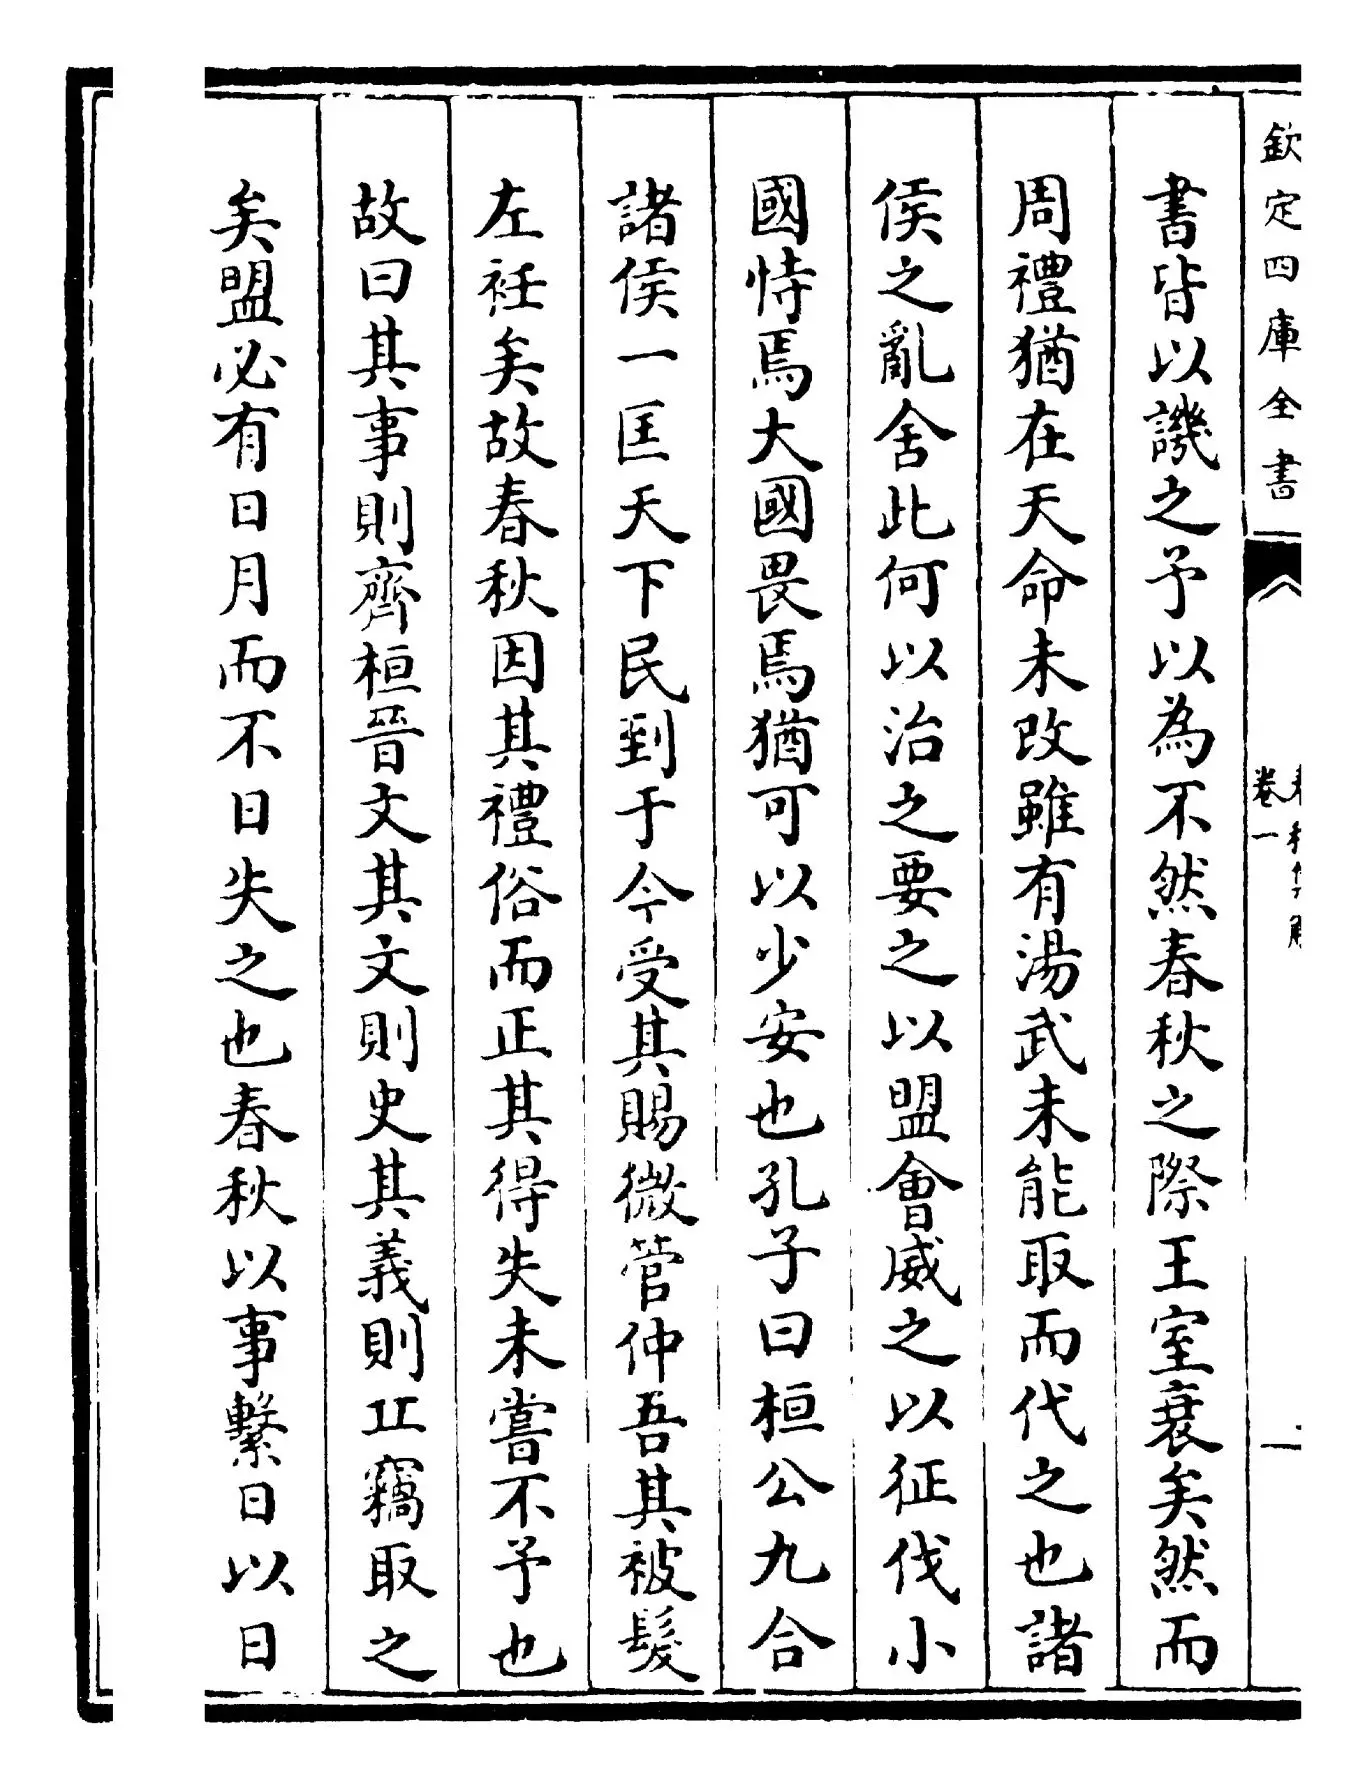 欽定四庫全書
卷一
書皆以譏之予以為不然春秋之際王室衰矣然而
周禮猶在天命未改雖有湯武未能取而代之也諸
侯之亂舍此何以治之要之以盟會威之以征伐小
國恃焉大國畏焉猶可以少安也孔子曰桓公九合
諸侯一匡天下民到于今受其賜微管仲吾其被髮
左衽矣故春秋因其禮俗而正其得失未嘗不予也
故曰其事則齊桓晉文其文則史其義則丘竊取之
矣盟必有日月而不日失之也春秋以事繫日以日